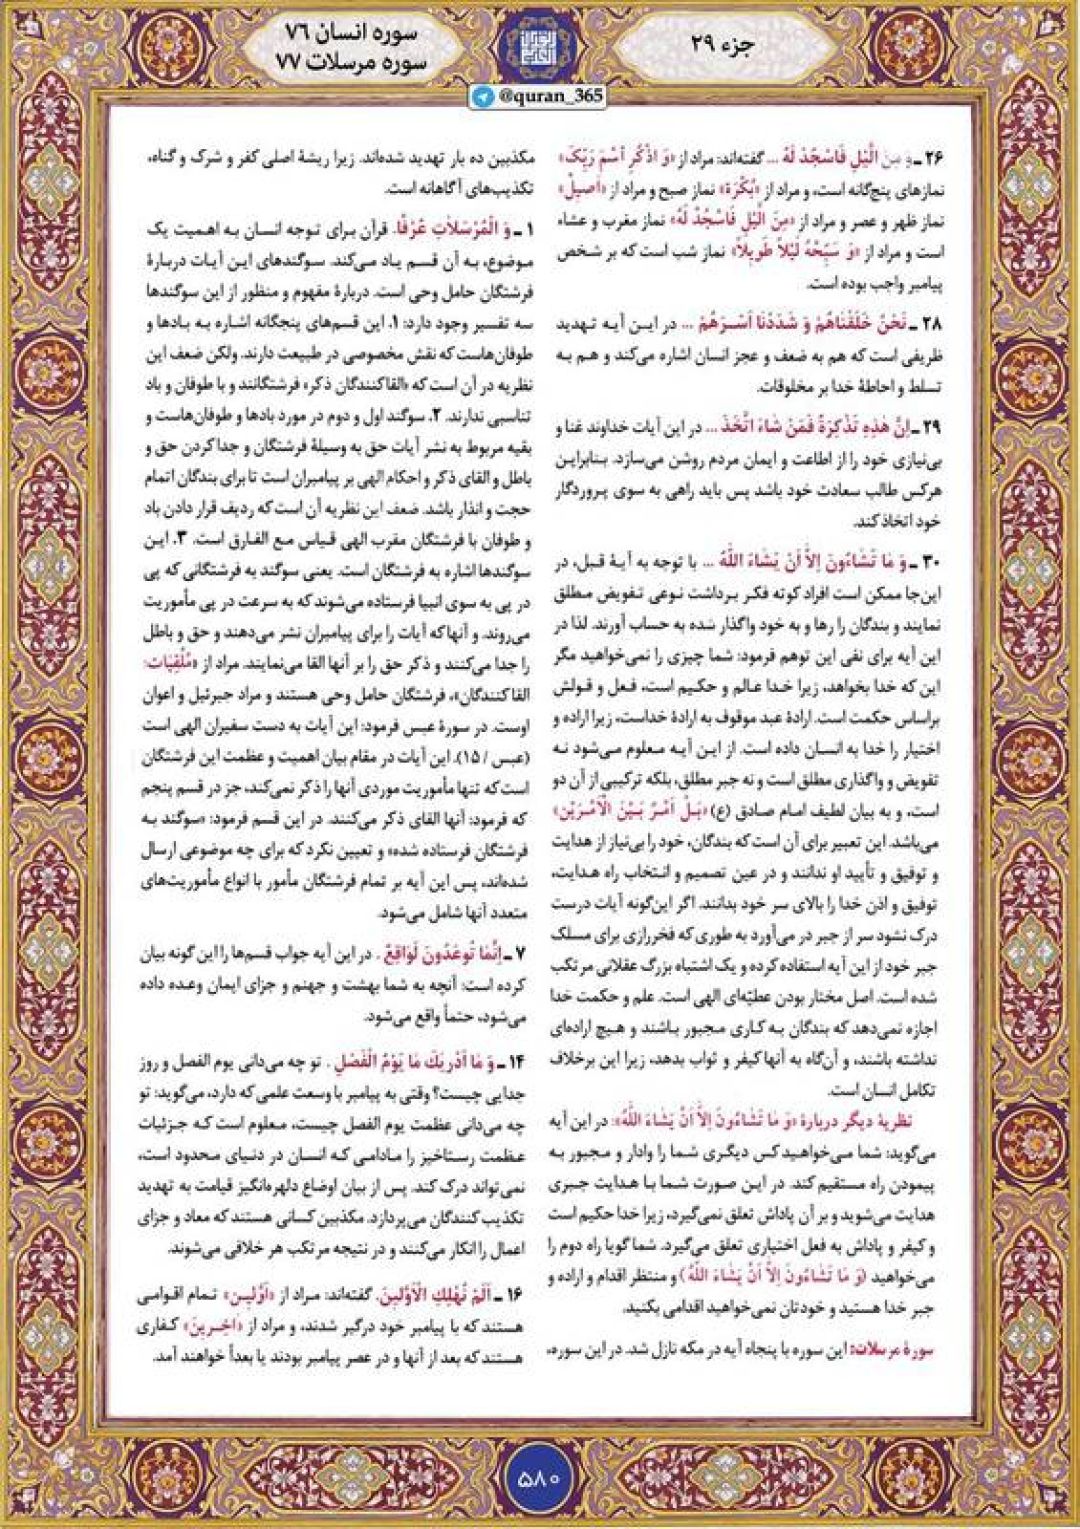 جزء ۲۹
سوره انسان ۷۶
سوره مرسلات ۷۷
@quran_365
۲۶ ـ وَ مِنَ الَّيْلِ فَاسْجُدْ لَهُ ... گفته‌اند: مراد از «وَ اذْكُرِ اسْمَ رَبِّكَ»
نمازهای پنج‌گانه است، و مراد از «بُكْرَة» نماز صبح و مراد از «أَصيلْ»
نماز ظهر و عصر و مراد از «مِنَ الَّيْلِ فَاسْجُدْ لَهُ» نماز مغرب و عشاء
است و مراد از «وَ سَبِّحْهُ لَيْلاً طَويلاً» نماز شب است که بر شخص
پیامبر واجب بوده است.
۲۸ ـ نَحْنُ خَلَقْنَاهُمْ وَ شَدَدْنَا أَسْرَهُمْ ... در این آیه تهدید
ظریفی است که هم به ضعف و عجز انسان اشاره می‌کند و هم به
تسلط و احاطۀ خدا بر مخلوقات.
۲۹ ـ اِنَّ هٰذِهِ تَذْكِرَةٌ فَمَنْ شَاءَ اتَّخَذَ ... در این آیات خداوند غنا و
بی‌نیازی خود را از اطاعت و ایمان مردم روشن می‌سازد. بنابراین
هرکس طالب سعادت خود باشد پس باید راهی به سوی پروردگار
خود اتخاذ کند.
۳۰ ـ وَ مَا تَشَاءُونَ اِلاَّ أَنْ يَشَاءَ اللّٰهُ ... با توجه به آیۀ قبل، در
این‌جا ممکن است افراد کوته فکر برداشت نوعی تفویض مطلق
نمایند و بندگان را رها و به خود واگذار شده به حساب آورند. لذا در
این آیه برای نفی این توهم فرمود: شما چیزی را نمی‌خواهید مگر
این که خدا بخواهد، زیرا خدا عالم و حکیم است، فعل و قولش
براساس حکمت است. ارادۀ عبد موقوف به ارادۀ خداست، زیرا اراده و
اختیار را خدا به انسان داده است. از این آیه معلوم می‌شود نه
تفویض و واگذاری مطلق است و نه جبر مطلق، بلکه ترکیبی از آن دو
است، و به بیان لطیف امام صادق (ع) «بَلْ اَمْرٌ بَيْنَ الْاَمْرَيْنِ»
می‌باشد. این تعبیر برای آن است که بندگان، خود را بی‌نیاز از هدایت
و توفیق و تأیید او ندانند و در عین تصمیم و انتخاب راه هدایت،
توفیق و اذن خدا را بالای سر خود بدانند. اگر این‌گونه آیات درست
درک نشود سر از جبر در می‌آورد به طوری که فخررازی برای مسلک
جبر خود از این آیه استفاده کرده و یک اشتباه بزرگ عقلانی مرتکب
شده است. اصل مختار بودن عطیّه‌ای الهی است. علم و حکمت خدا
اجازه نمی‌دهد که بندگان به کاری مجبور باشند و هیچ اراده‌ای
نداشته باشند، و آن‌گاه به آنها کیفر و ثواب بدهد، زیرا این برخلاف
تکامل انسان است.
نظریۀ دیگر دربارۀ «وَ مَا تَشَاءُونَ اِلاَّ أَنْ يَشَاءَ اللّٰهُ»: در این آیه
می‌گوید: شما می‌خواهید کس دیگری شما را وادار و مجبور به
پیمودن راه مستقیم کند. در این صورت شما با هدایت جبری
هدایت می‌شوید و بر آن پاداش تعلق نمی‌گیرد، زیرا خدا حکیم است
و کیفر و پاداش به فعل اختیاری تعلق می‌گیرد. شما گویا راه دوم را
می‌خواهید (وَ مَا تَشَاءُونَ اِلاَّ أَنْ يَشَاءَ اللّٰهُ) و منتظر اقدام و اراده و
جبر خدا هستید و خودتان نمی‌خواهید اقدامی بکنید.
سورۀ مرسلات: این سوره با پنجاه آیه در مکه نازل شد. در این سوره،
مکذبین ده بار تهدید شده‌اند. زیرا ریشۀ اصلی کفر و شرک و گناه،
تکذیب‌های آگاهانه است.
۱ ـ وَ الْمُرْسَلَاتِ عُرْفًا. قرآن برای توجه انسان به اهمیت یک
موضوع، به آن قسم یاد می‌کند. سوگندهای این آیات دربارۀ
فرشتگان حامل وحی است. دربارۀ مفهوم و منظور از این سوگندها
سه تفسیر وجود دارد: ۱. این قسم‌های پنجگانه اشاره به بادها و
طوفان‌هاست که نقش مخصوصی در طبیعت دارند. ولکن ضعف این
نظریه در آن است که «القاکنندگان ذکر» فرشتگانند و با طوفان و باد
تناسبی ندارند. ۲. سوگند اول و دوم در مورد بادها و طوفان‌هاست و
بقیه مربوط به نشر آیات حق به وسیلۀ فرشتگان و جدا کردن حق و
باطل و القای ذکر و احکام الهی بر پیامبران است تا برای بندگان اتمام
حجت و انذار باشد. ضعف این نظریه آن است که ردیف قرار دادن باد
و طوفان با فرشتگان مقرب الهی قیاس مع الفارق است. ۳. این
سوگندها اشاره به فرشتگان است. یعنی سوگند به فرشتگانی که پی
در پی به سوی انبیا فرستاده می‌شوند که به سرعت در پی مأموریت
می‌روند. و آنها که آیات را برای پیامبران نشر می‌دهند و حق و باطل
را جدا می‌کنند و ذکر حق را بر آنها القا می‌نمایند. مراد از «مُلْقِيَات:
القاکنندگان»، فرشتگان حامل وحی هستند و مراد جبرئیل و اعوان
اوست. در سورۀ عبس فرمود: این آیات به دست سفیران الهی است
(عبس / ۱۵). این آیات در مقام بیان اهمیت و عظمت این فرشتگان
است که تنها مأموریت موردی آنها را ذکر نمی‌کند، جز در قسم پنجم
که فرمود: آنها القای ذکر می‌کنند. در این قسم فرمود: «سوگند به
فرشتگان فرستاده شده» و تعیین نکرد که برای چه موضوعی ارسال
شده‌اند، پس این آیه بر تمام فرشتگان مأمور با انواع مأموریت‌های
متعدد آنها شامل می‌شود.
۷ ـ اِنَّمَا تُوعَدُونَ لَوَاقِعٌ . در این آیه جواب قسم‌ها را این گونه بیان
کرده است: آنچه به شما بهشت و جهنم و جزای ایمان وعده داده
می‌شود، حتماً واقع می‌شود.
۱۴ ـ وَ مَا أَدْرِيكَ مَا يَوْمُ الْفَصْلِ . تو چه می‌دانی یوم الفصل و روز
جدایی چیست؟ وقتی به پیامبر با وسعت علمی که دارد، می‌گوید: تو
چه می‌دانی عظمت یوم الفصل چیست، معلوم است که جزئیات
عظمت رستاخیز را مادامی که انسان در دنیای محدود است،
نمی‌تواند درک کند. پس از بیان اوضاع دلهره‌انگیز قیامت به تهدید
تکذیب کنندگان می‌پردازد. مکذبین کسانی هستند که معاد و جزای
اعمال را انکار می‌کنند و در نتیجه مرتکب هر خلافی می‌شوند.
۱۶ ـ اَلَمْ نُهْلِكِ الْاَوَّلينَ. گفته‌اند: مراد از «اَوَّلین» تمام اقوامی
هستند که با پیامبر خود درگیر شدند، و مراد از «اخِرینَ» کفاری
هستند که بعد از آنها و در عصر پیامبر بودند یا بعداً خواهند آمد.
۵۸۰